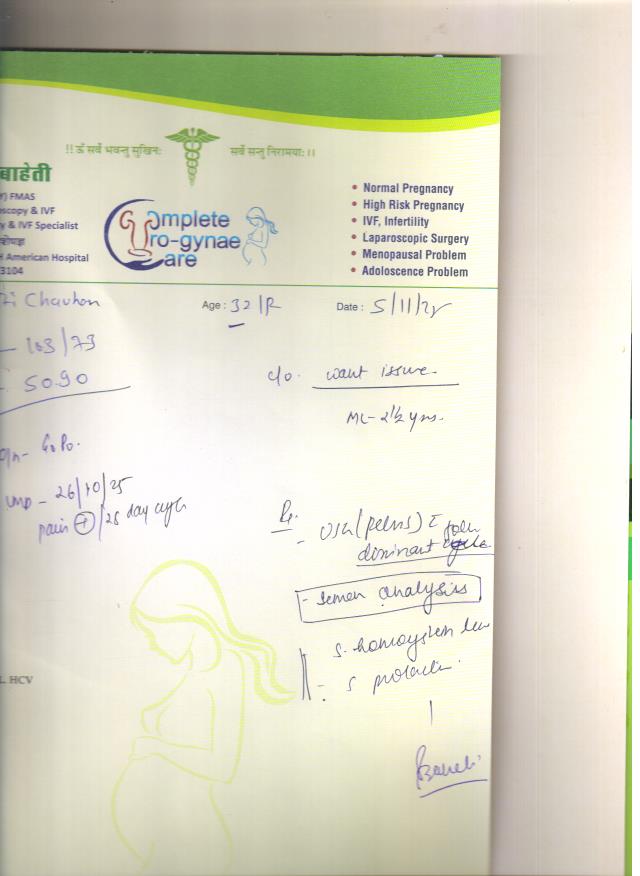 !! ॐ सर्वे भवन्तु सुखिनः सर्वे सन्तु निरामयाः।।
बाहेती
Y) FMAS
oscopy & IVF
y & IVF Specialist
H American Hospital
3104
Complete
Uro-gynae
Care
• Normal Pregnancy
• High Risk Pregnancy
• IVF, Infertility
• Laparoscopic Surgery
• Menopausal Problem
• Adoloscence Problem
Chauhan
Age : 32 / F
Date : 5/11/25
103/73
50.90
c/o. want issue.
ML - 2½ yrs.
G0P0.
LMP - 26/10/25
pain + / 28 day cycle
Rx
- USG (pelvis)
dominant
- Semen analysis
S. homocystein
- S prolactin
L HCV